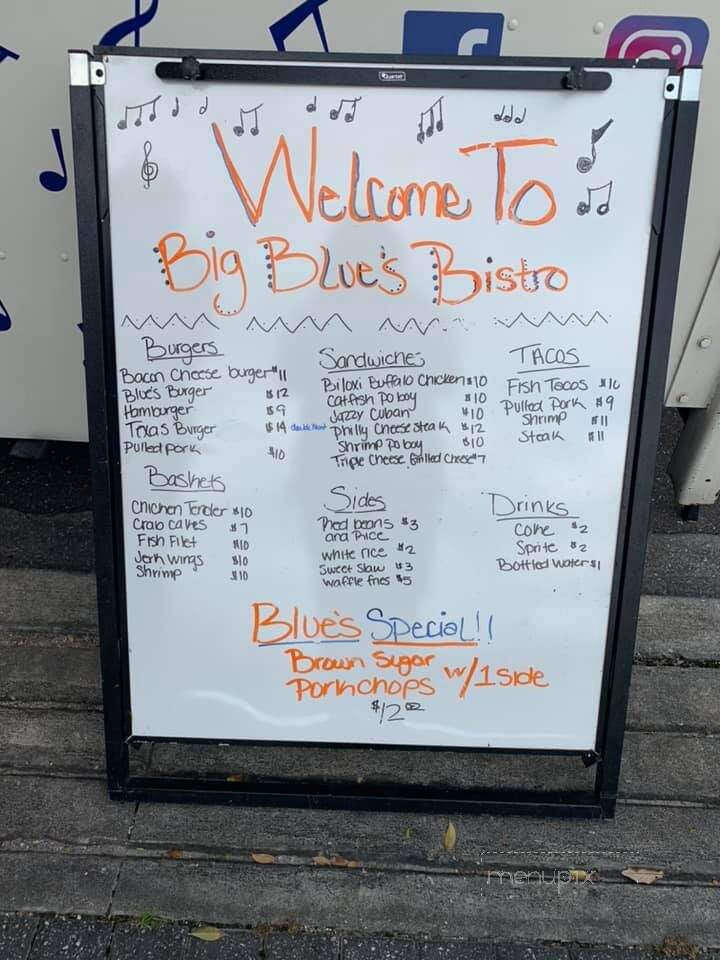 Quartet
Welcome To
Big Blue's Bistro
Burgers
Bacon Cheese burger $11
Blue's Burger $12
Hamburger $9
Texas Burger $14 double Meat
Pulled pork $10
Baskets
Chicken Tender $10
Crab Cakes $7
Fish Fillet $10
Jerk wings $10
Shrimp $10
Sandwiches
Biloxi Buffalo Chicken $10
Catfish Po boy $10
Jazzy Cuban $10
Philly Cheese Steak $12
Shrimp Po boy $10
Triple Cheese Grilled Cheese $7
Sides
Red beans $3
and Rice
white rice $2
Sweet Slaw $3
waffle fries $5
TACOS
Fish Tacos $10
Pulled Pork $9
Shrimp $11
Steak $11
Drinks
Coke $2
Sprite $2
Bottled Water $1
Blue's Special!!
Brown Sugar
Porkchops w/1 Side
$12.00
menupix